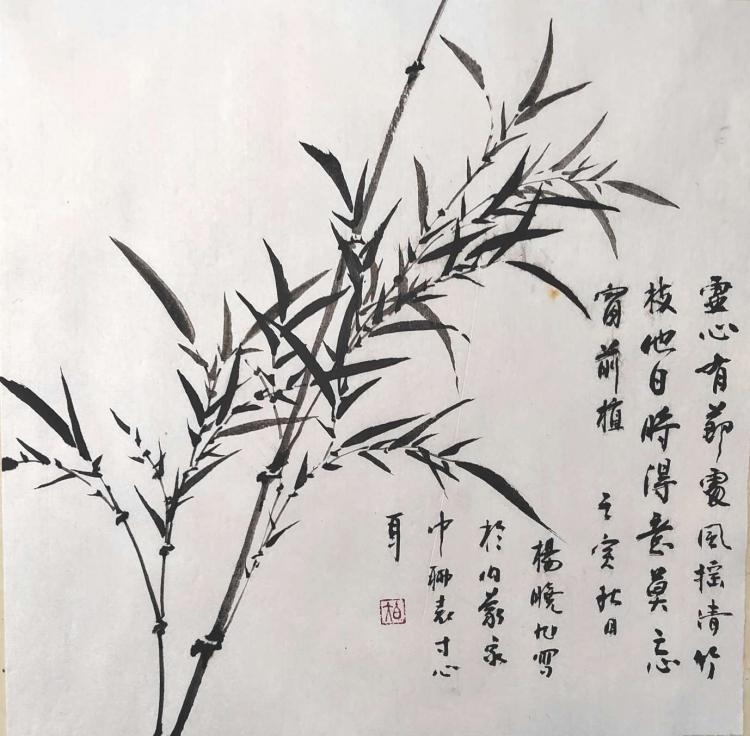 虛心有節處風搖清竹
枝他日時得意莫忘
窗前植 秋月
楊曉旭寫
於內蒙家
中聊表寸心
耳